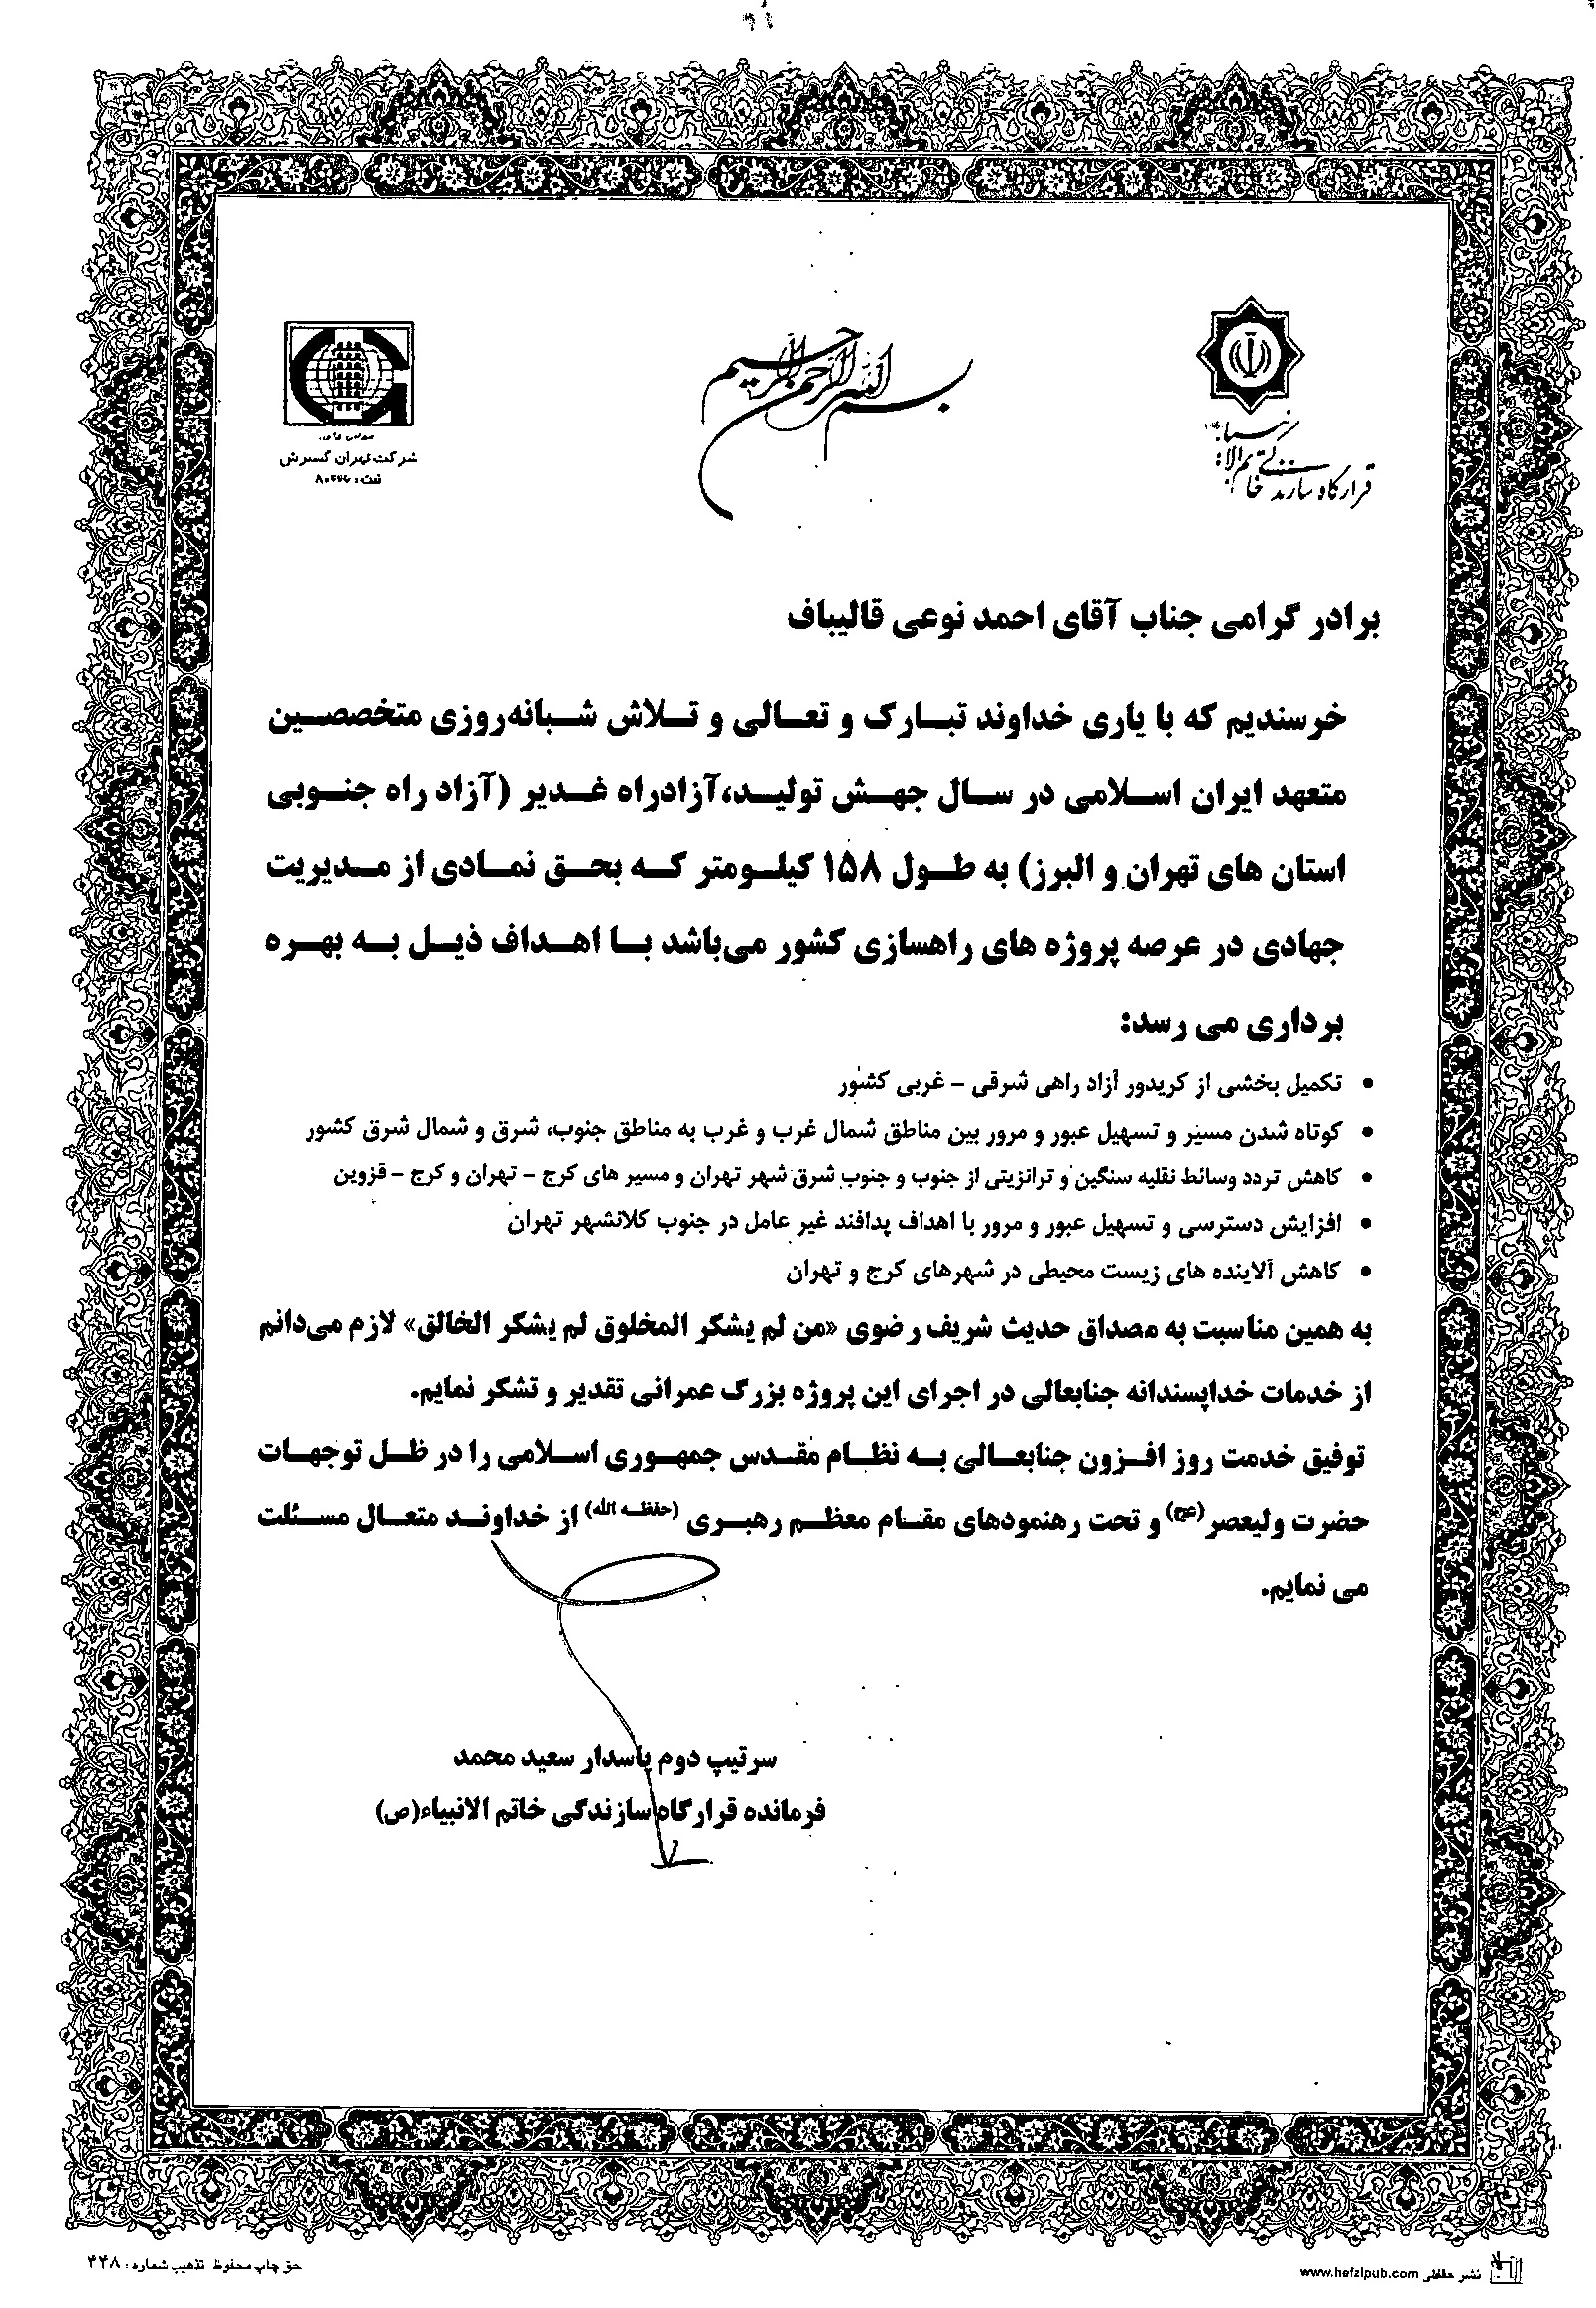 بسم الله الرحمن الرحیم
قرارگاه سازندگی خاتم الانبیاء
شرکت تهران گسترش
برادر گرامی جناب آقای احمد نوعی قالیباف
خرسندیم که با یاری خداوند تبارک و تعالی و تلاش شبانه‌روزی متخصصین
متعهد ایران اسلامی در سال جهش تولید،آزادراه غدیر (آزاد راه جنوبی
استان های تهران و البرز) به طول ۱۵۸ کیلومتر که بحق نمادی از مدیریت
جهادی در عرصه پروژه های راهسازی کشور می‌باشد با اهداف ذیل به بهره
برداری می رسد:
• تکمیل بخشی از کریدور آزاد راهی شرقی - غربی کشور
• کوتاه شدن مسیر و تسهیل عبور و مرور بین مناطق شمال غرب و غرب به مناطق جنوب، شرق و شمال شرق کشور
• کاهش تردد وسائط نقلیه سنگین و ترانزیتی از جنوب و جنوب شرق شهر تهران و مسیر های کرج - تهران و کرج - قزوین
• افزایش دسترسی و تسهیل عبور و مرور با اهداف پدافند غیر عامل در جنوب کلانشهر تهران
• کاهش آلاینده های زیست محیطی در شهرهای کرج و تهران
به همین مناسبت به مصداق حدیث شریف رضوی «من لم یشکر المخلوق لم یشکر الخالق» لازم می‌دانم
از خدمات خداپسندانه جنابعالی در اجرای این پروژه بزرگ عمرانی تقدیر و تشکر نمایم.
توفیق خدمت روز افزون جنابعالی به نظام مقدس جمهوری اسلامی را در ظل توجهات
حضرت ولیعصر(عج) و تحت رهنمودهای مقام معظم رهبری (حفظه الله) از خداوند متعال مسئلت
می نمایم.
سرتیپ دوم پاسدار سعید محمد
فرمانده قرارگاه سازندگی خاتم الانبیاء(ص)
حق چاپ محفوظ تذهیب شماره: ۴۴۸
نشر حفظی www.hefzipub.com